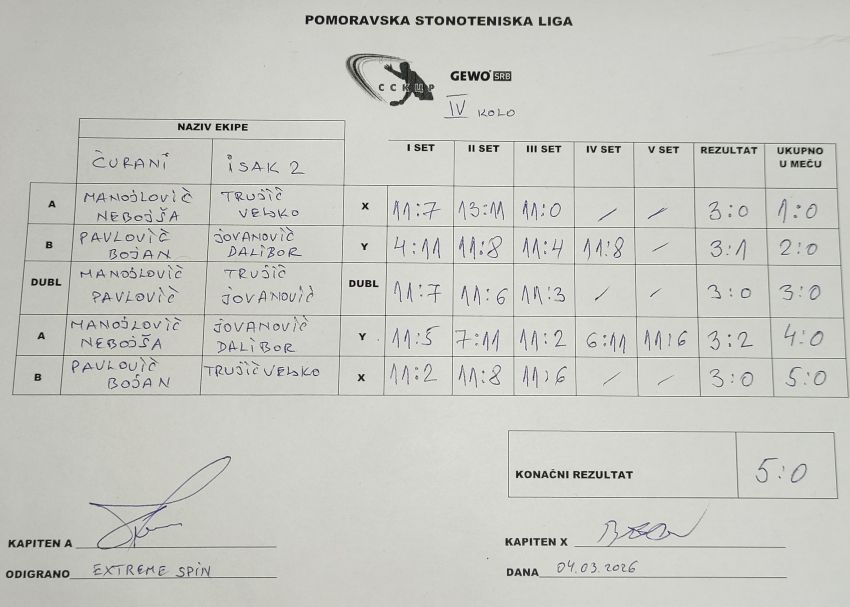 POMORAVSKA STONOTENISKA LIGA
ССКЦР GEWO SRB
IV KOLO
NAZIV EKIPE
ČURANI ISAK 2 I SET II SET III SET IV SET V SET REZULTAT UKUPNO U MEČU
A MANOJLOVIČ NEBOJŠA TRUJIČ VELJKO X 11:7 13:11 11:0 / / 3:0 1:0
B PAVLOVIČ BOJAN JOVANOVIČ DALIBOR Y 4:11 11:8 11:4 11:8 / 3:1 2:0
DUBL MANOJLOVIČ PAVLOVIČ TRUJIČ JOVANOVIČ DUBL 11:7 11:6 11:3 / / 3:0 3:0
A MANOJLOVIČ NEBOJŠA JOVANOVIČ DALIBOR Y 11:5 7:11 11:2 6:11 11:6 3:2 4:0
B PAVLOVIČ BOJAN TRUJIČ VELJKO X 11:2 11:8 11:6 / / 3:0 5:0
KONAČNI REZULTAT 5:0
KAPITEN A KAPITEN X
ODIGRANO EXTREME SPIN DANA 04.03.2026